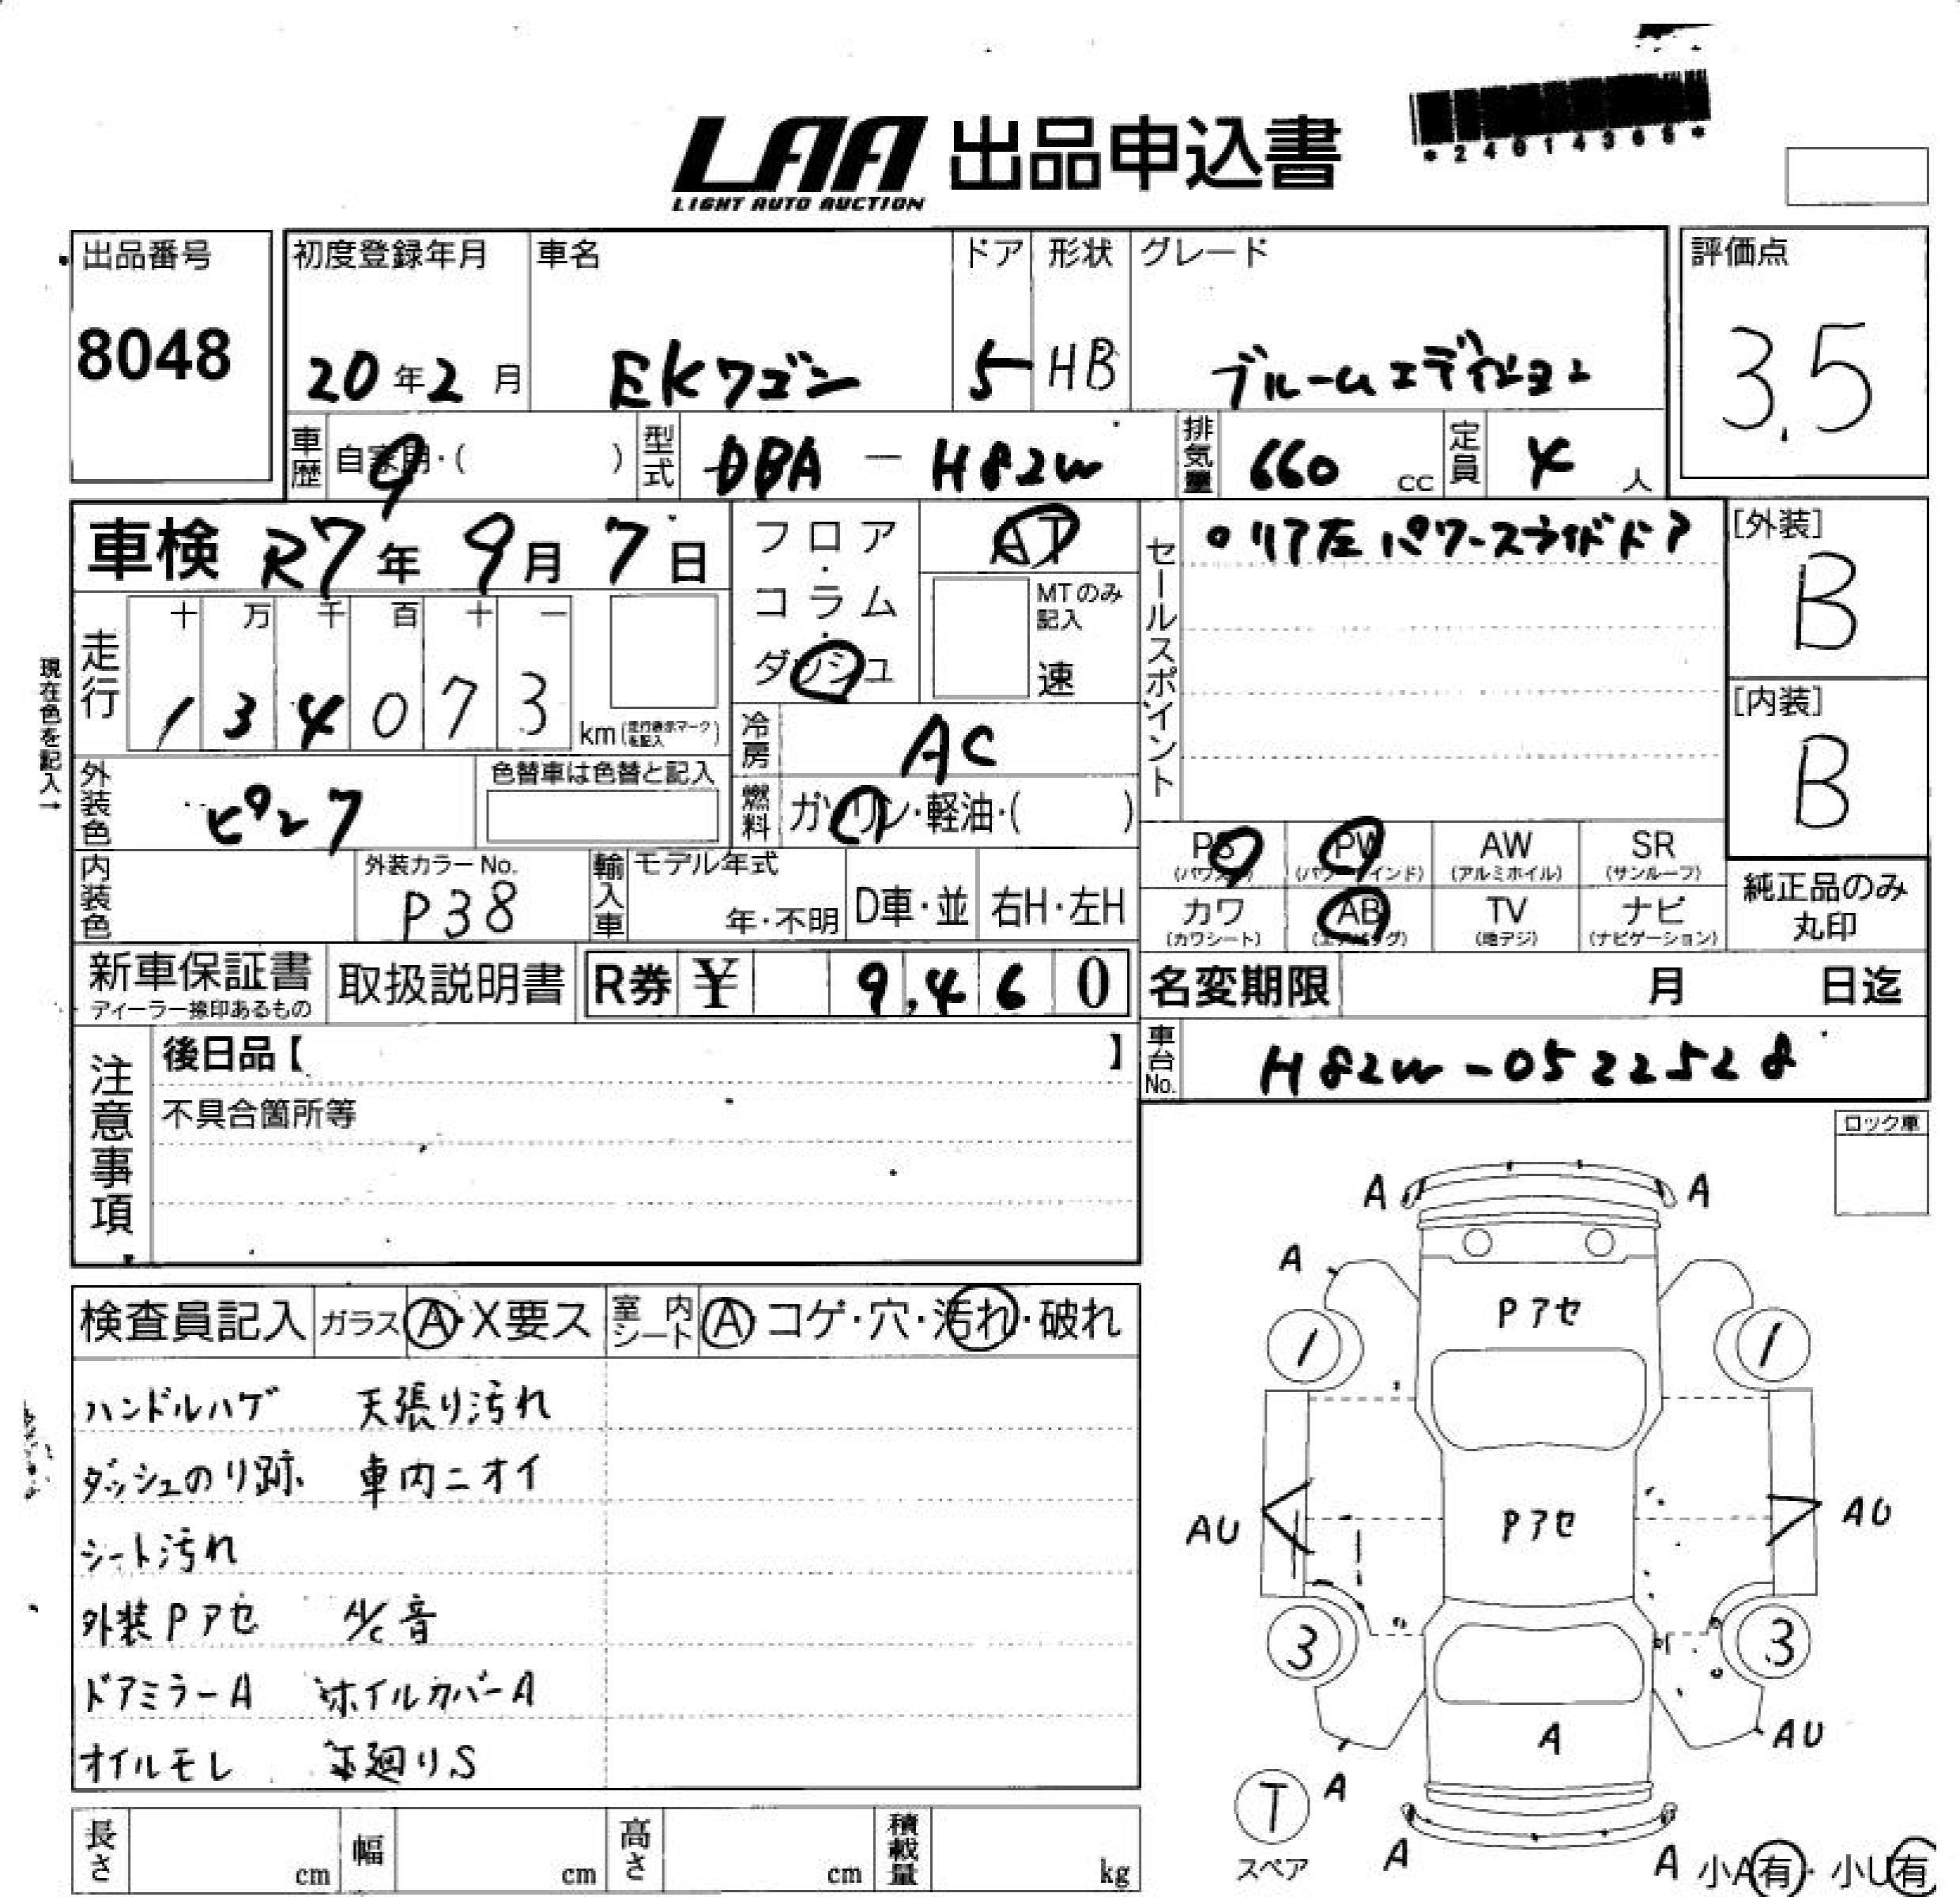 LAA 出品申込書
LIGHT AUTO AUCTION
*24014365*
出品番号
8048
初度登録年月
20年2月
車名
EKワゴン
ドア
5
形状
HB
グレード
ブルームエディション
評価点
3.5
車歴
自家用・( )
型式
DBA - H82W
排気量
660 cc
定員
4 人
車検 R7年9月7日
走行
現在色を記入→
十 万 千 百 十 一
1 3 4 0 7 3
km(走行表示マークを記入)
フロア・コラム・ダッシュ
AT
MTのみ記入
速
冷房
AC
燃料
ガソリン・軽油・( )
セールスポイント
○リア左パワースライドドア
[外装]
B
[内装]
B
外装色
ピンク
色替車は色替と記入
内装色
外装カラーNo.
P38
輸入車
モデル年式
年・不明
D車・並
右H・左H
PS
(パワステ)
PW
(パワーウインド)
AW
(アルミホイル)
SR
(サンルーフ)
カワ
(カワシート)
AB
(エアバッグ)
TV
(地デジ)
ナビ
(ナビゲーション)
純正品のみ
丸印
新車保証書
ディーラー捺印あるもの
取扱説明書
R券 ¥ 9,460
名変期限 月 日迄
車台No.
H82W-0522528
注意事項
後日品【 】
不具合箇所等
ロック車
検査員記入
ガラス Ⓐ・X要ス
室内シート Ⓐ・コゲ・穴・汚れ・破れ
ハンドルハゲ 天張り汚れ
ダッシュのり跡 車内ニオイ
シート汚れ
外装Pアセ A/C音
ドアミラーA ホイルカバーA
オイルモレ 下廻りS
A A
A
Pアセ
1 1
AU Pアセ AU
3 3
A AU
A
T
スペア
A A
小A有・小U有
長さ cm
幅 cm
高さ cm
積載量 kg